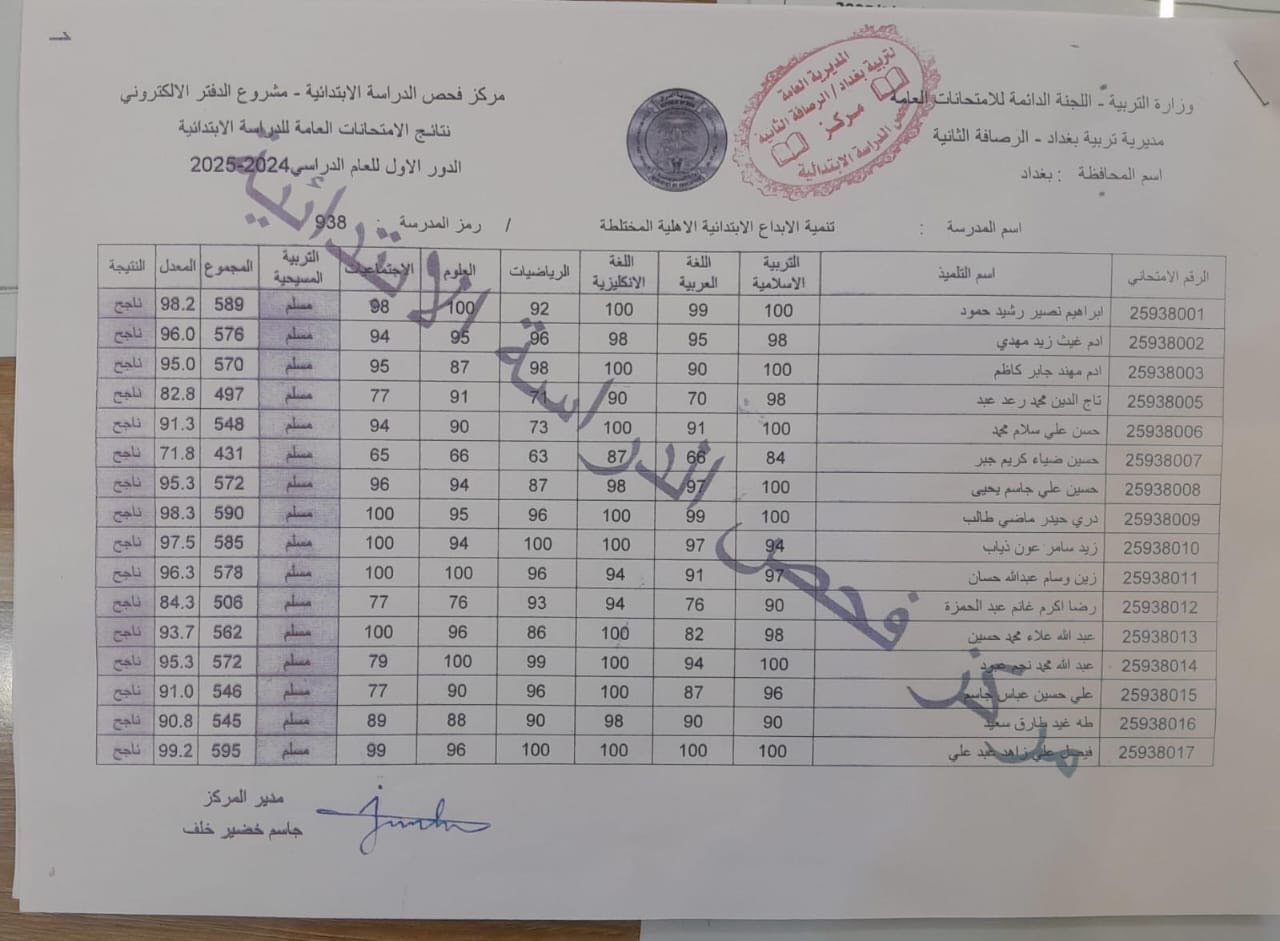 وزارة التربية - اللجنة الدائمة للامتحانات العامة
مديرية تربية بغداد - الرصافة الثانية
اسم المحافظة : بغداد
المديرية العامة
لتربية بغداد/ الرصافة الثانية
مركز
فحص الدراسة الابتدائية
مركز فحص الدراسة الابتدائية - مشروع الدفتر الالكتروني
نتائج الامتحانات العامة للدراسة الابتدائية
الدور الاول للعام الدراسي 2024-2025
اسم المدرسة : تنمية الابداع الابتدائية الاهلية المختلطة / رمز المدرسة : 938
الرقم الامتحاني اسم التلميذ التربية الاسلامية اللغة العربية اللغة الانكليزية الرياضيات العلوم الاجتماعيات التربية المسيحية المجموع المعدل النتيجة
25938001 ابراهيم نصير رشيد حمود 100 99 100 92 100 98 مسلم 589 98.2 ناجح
25938002 ادم غيث زيد مهدي 98 95 98 96 95 94 مسلم 576 96.0 ناجح
25938003 ادم مهند جابر كاظم 100 90 100 98 87 95 مسلم 570 95.0 ناجح
25938005 تاج الدين محمد رعد عبد 98 70 90 71 91 77 مسلم 497 82.8 ناجح
25938006 حسن علي سلام محمد 100 91 100 73 90 94 مسلم 548 91.3 ناجح
25938007 حسين ضياء كريم جبر 84 66 87 63 66 65 مسلم 431 71.8 ناجح
25938008 حسين علي جاسم يحيى 100 97 98 87 94 96 مسلم 572 95.3 ناجح
25938009 دري حيدر ماضي طالب 100 99 100 96 95 100 مسلم 590 98.3 ناجح
25938010 زيد سامر عون ذياب 94 97 100 100 94 100 مسلم 585 97.5 ناجح
25938011 زين وسام عبدالله حسان 97 91 94 96 100 100 مسلم 578 96.3 ناجح
25938012 رضا اكرم غانم عبد الحمزة 90 76 94 93 76 77 مسلم 506 84.3 ناجح
25938013 عبد الله علاء محمد حسين 98 82 100 86 96 100 مسلم 562 93.7 ناجح
25938014 عبد الله محمد نجم عبود 100 94 100 99 100 79 مسلم 572 95.3 ناجح
25938015 علي حسين عباس جاسم 96 87 100 96 90 77 مسلم 546 91.0 ناجح
25938016 طه غيد طارق سعيد 90 90 98 90 88 89 مسلم 545 90.8 ناجح
25938017 فيصل علي زاهد عبد علي 100 100 100 100 96 99 مسلم 595 99.2 ناجح
مركز فحص الدراسة الابتدائية
مدير المركز
جاسم خضير خلف